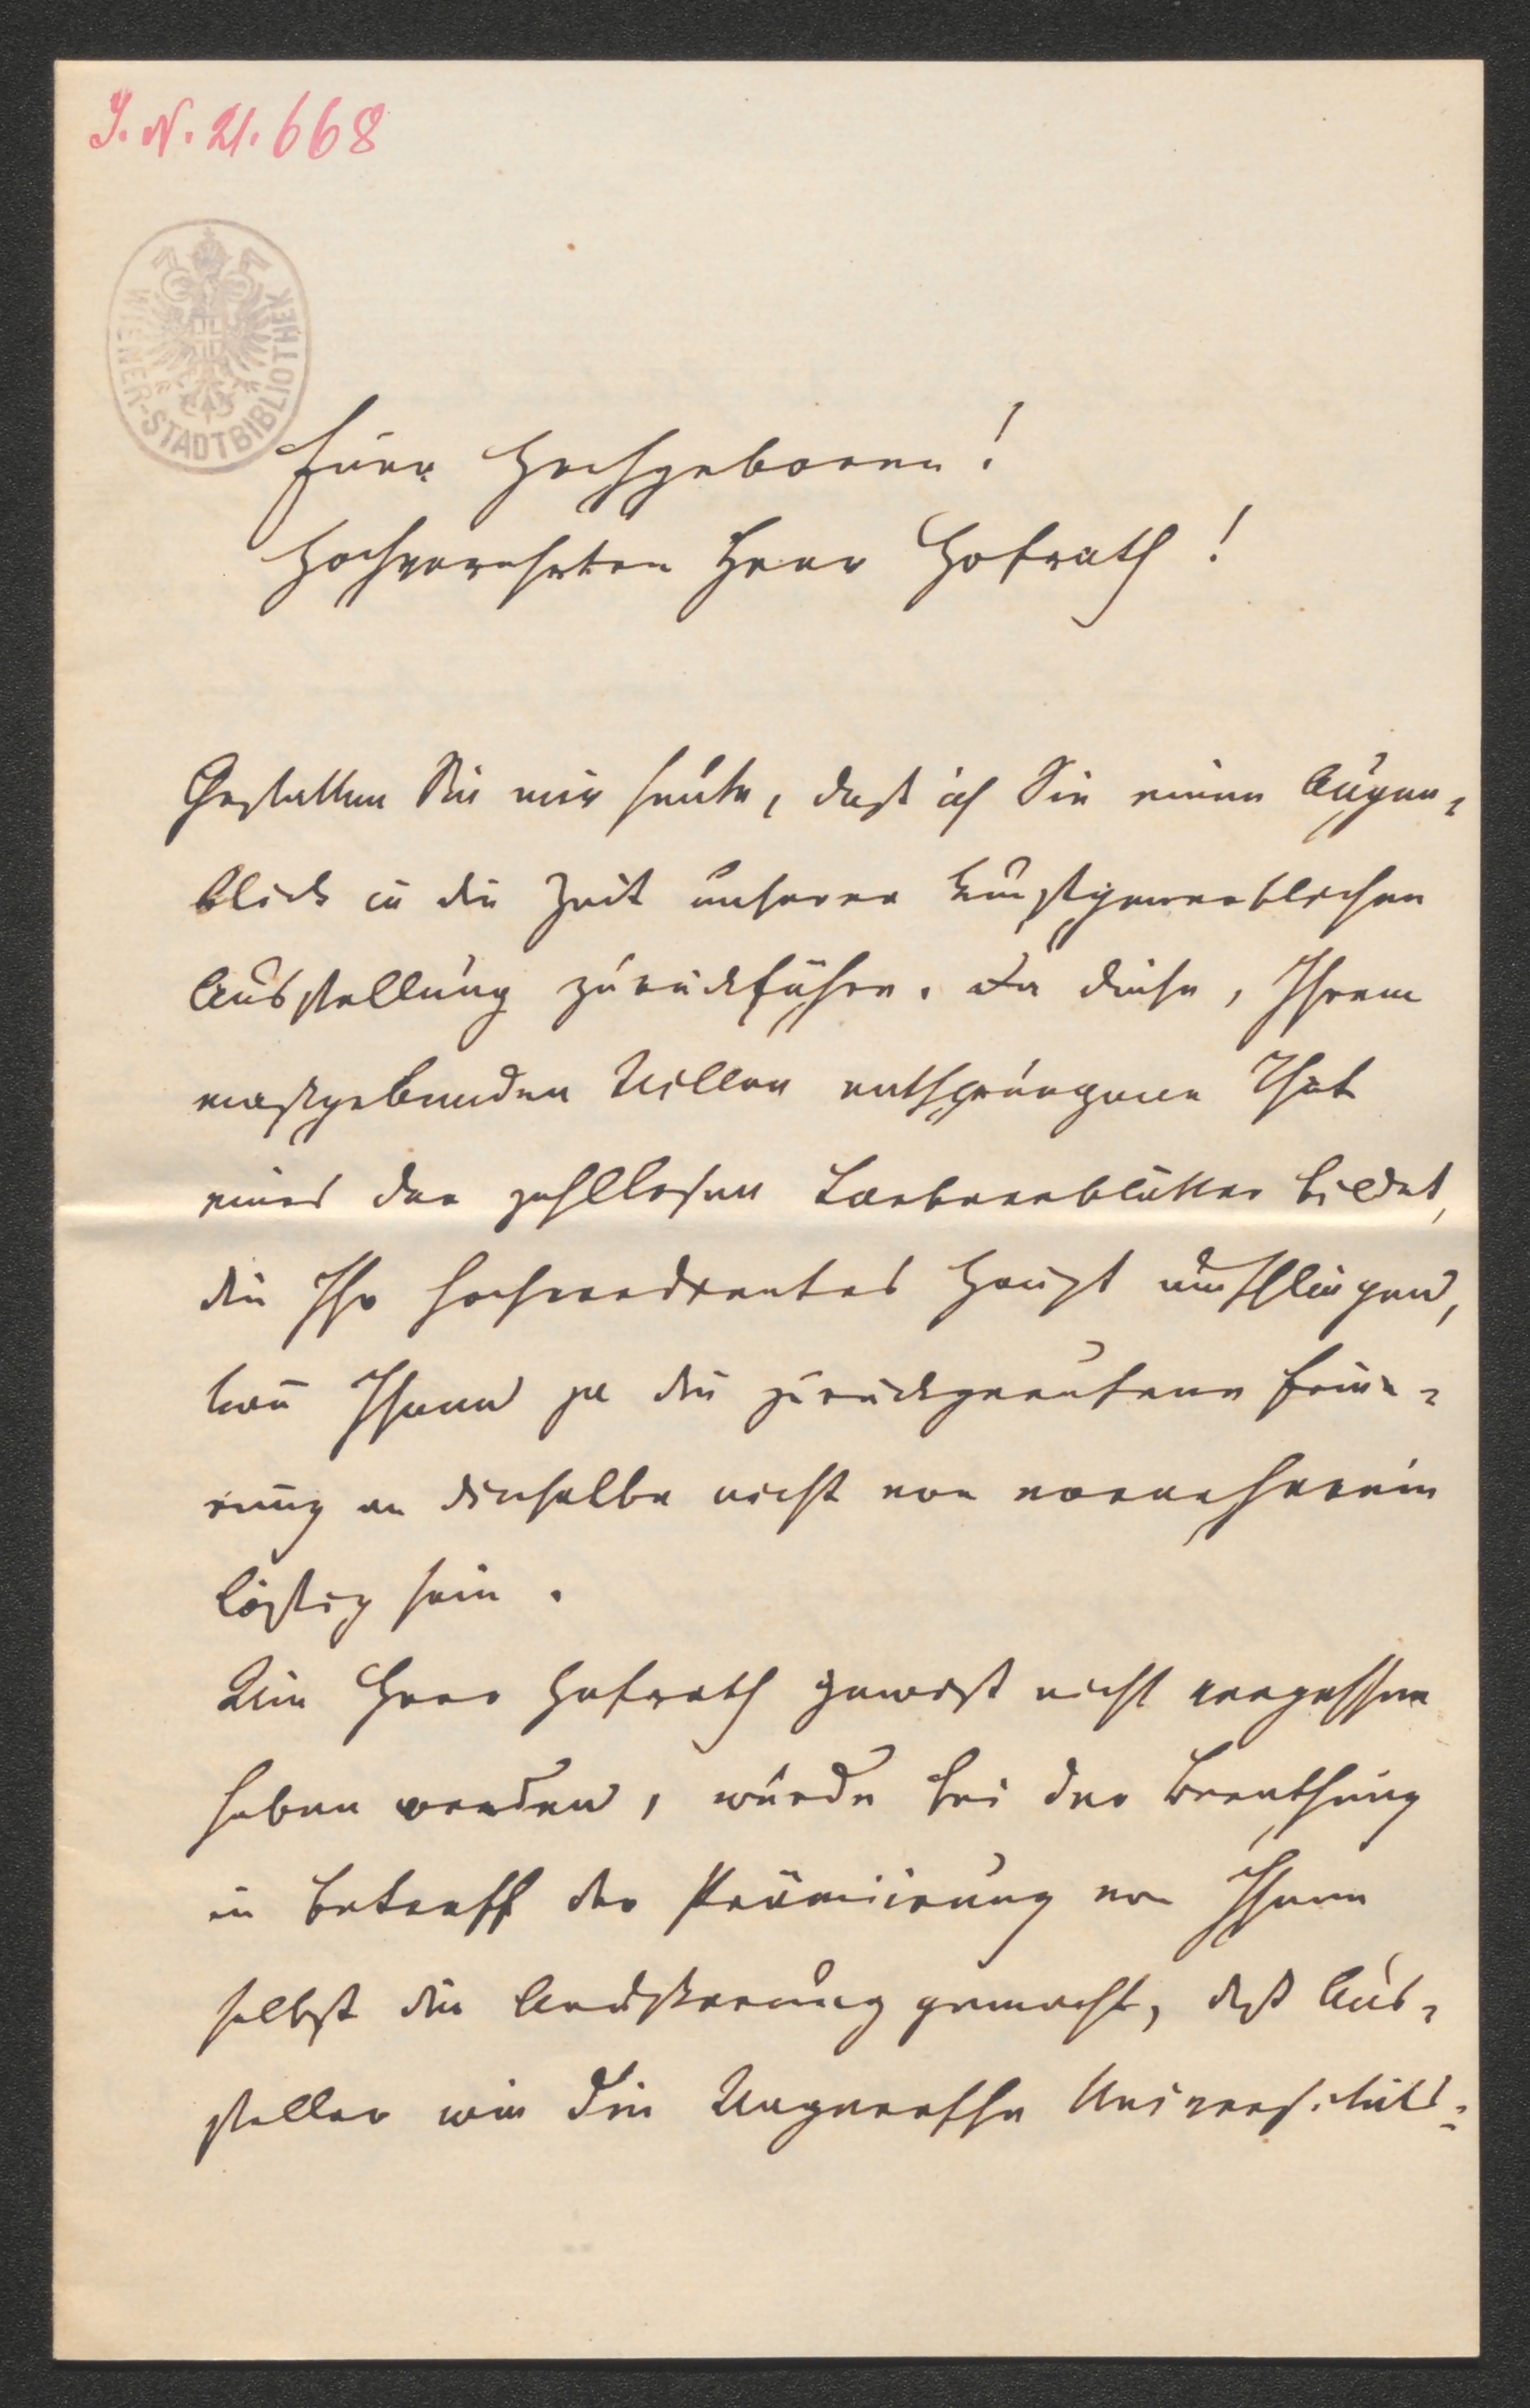 J. N. 21.668
WIENER-STADTBIBLIOTHEK
Euer Hochgeboren!
Hochverehrter Herr Hofrath!
Gestatten Sie mir heute, daß ich Sie einen Augen-
blick in die Zeit unserer kunstgewerblichen
Ausstellung zurückführe. Da diese, Ihrem
maßgebenden Willen entsprungene That
eines der zahllosen Lorbeerblätter bildet,
die Ihr hochverdientes Haupt umschlingen,
kann Ihnen ja die zurückgerufene Erinne-
rung an dieselbe nicht von vorneherein
lästig sein.
Wie Herr Hofrath gewiß nicht vergessen
haben werden, wurde bei der Berathung
in Betreff der Prämiirung von Ihnen
selbst die Aeußerung gemacht, daß Aus-
steller wie die Wagner'sche Universitäts-